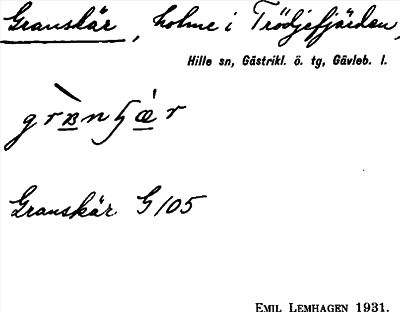 Granskär, holme i Trödjefjärden,
Hille sn, Gästrikl. ö. tg, Gävleb. l.
Granskär G 105
EMIL LEMHAGEN 1931.